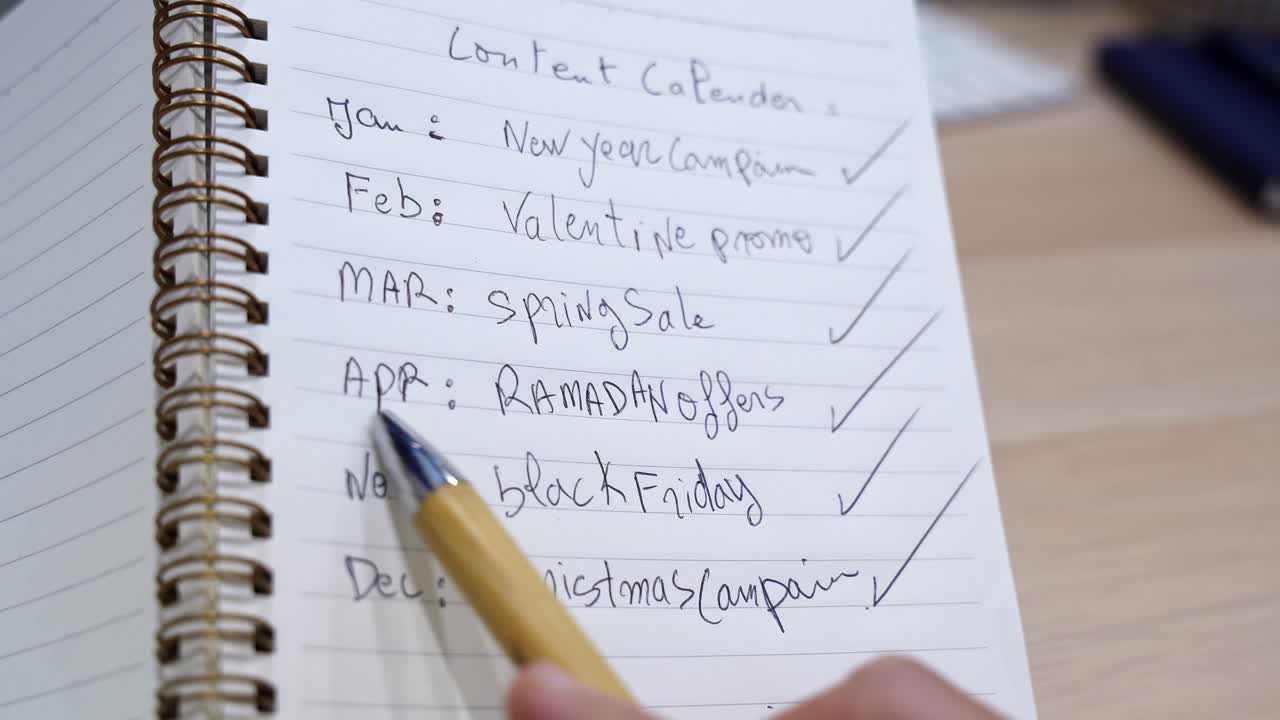 Content Calender :
Jan : New year Campain ✓
Feb : Valentine promo ✓
MAR : Spring Sale ✓
APR : RAMADAN offers ✓
No black Friday ✓
Dec : ristmas Campain ✓